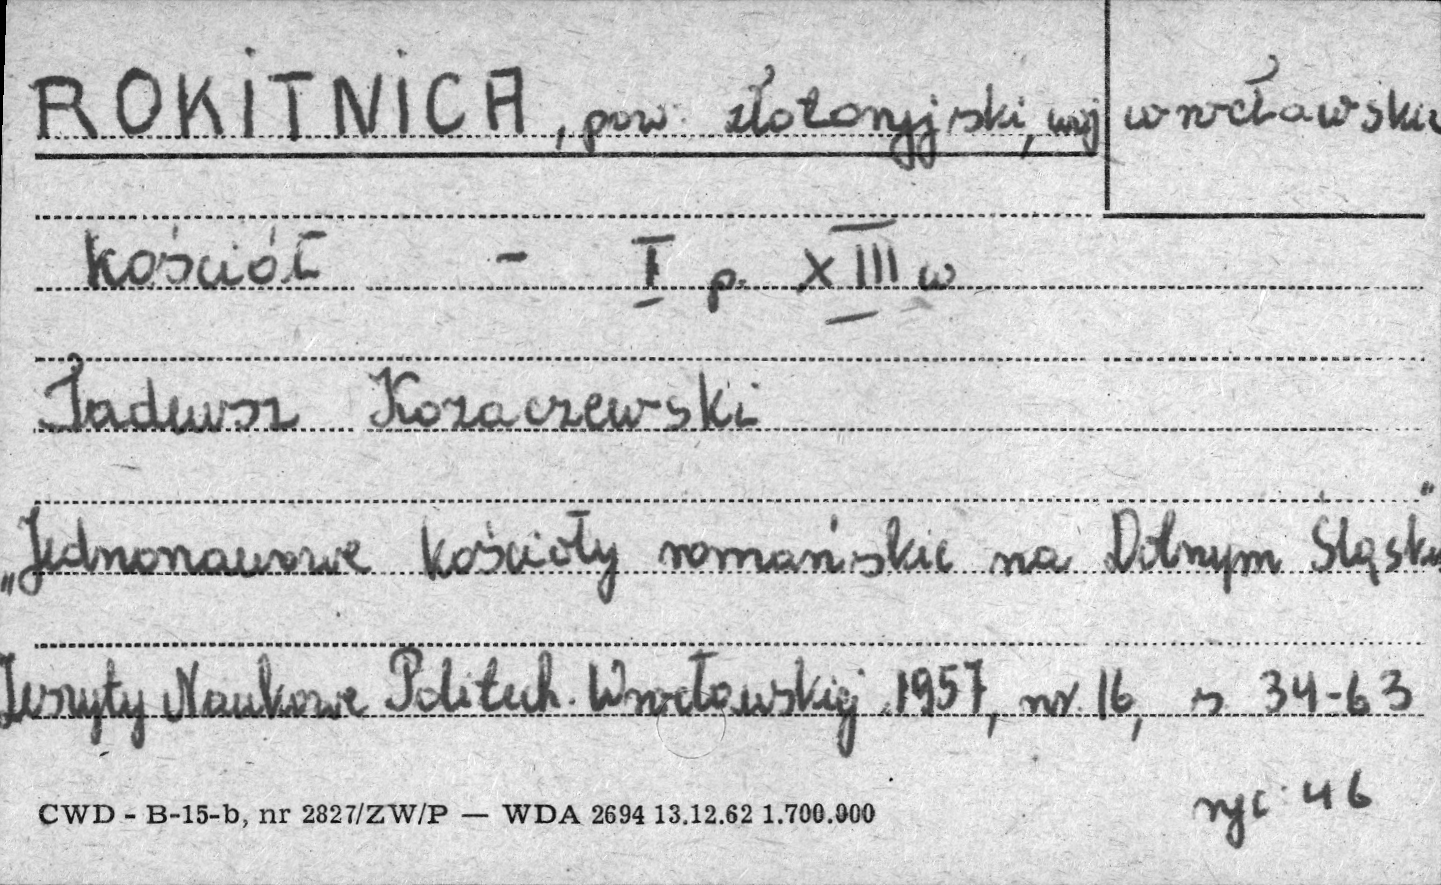 ROKITNICA, pow. złotoryjski, woj wrocławskie
kościół - I p. XIII w
Tadeusz Kozaczewski
„Jednonawowe kościoły romańskie na Dolnym Śląsku"
Zeszyty Naukowe Politech. Wrocławskiej 1957, nr. 16, s 34-63
ryc. 46
CWD - B-15-b, nr 2827/ZW/P — WDA 2694 13.12.62 1.700.000